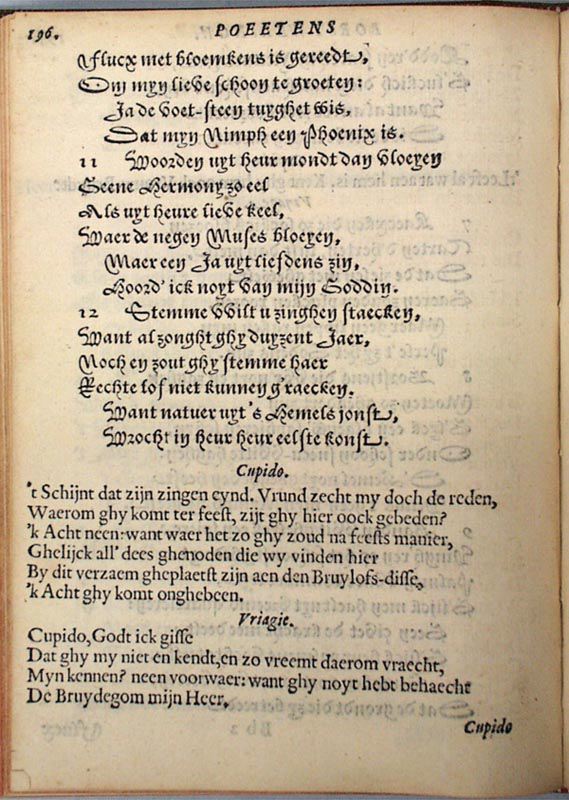 196. POEETENS
Flucx met bloemkens is gereedt,
Om myn lieve schoon te groeten:
Ja de voet-steen tuyghet wis,
Dat myn Nimph een Phoenix is.
11 Woorden uyt heur mondt dan vloeyen
Geene Hermony zo eel
Als uyt heure lieve keel,
Waer de negen Muses bloeyen,
Maer een Ja uyt liefdens zin,
Hoord' ick noyt van mijn Goddin.
12 Stemme wilt u zinghen staecken,
Want al zonght ghy duyzent Jaer,
Noch en zout ghy stemme haer
Rechte lof niet kunnen g'raecken.
Want natuer uyt's Hemels jonst,
Wrocht in heur heur eelste konst.
Cupido.
't Schijnt dat zijn zingen eynd. Vrund zecht my doch de reden,
Waerom ghy komt ter feest, zijt ghy hier oock gebeden?
'k Acht neen: want waer het zo ghy zoud na feests manier,
Ghelijck all' dees ghenoden die wy vinden hier
By dit verzaem gheplaetst zijn aen den Bruylofs-disse,
'k Acht ghy komt onghebeen.
Vriagie.
Cupido, Godt ick gisse
Dat ghy my niet en kendt, en zo vreemt daerom vraecht,
Myn kennen? neen voorwaer: want ghy noyt hebt behaecht
De Bruydegom mijn Heer.
Cupido